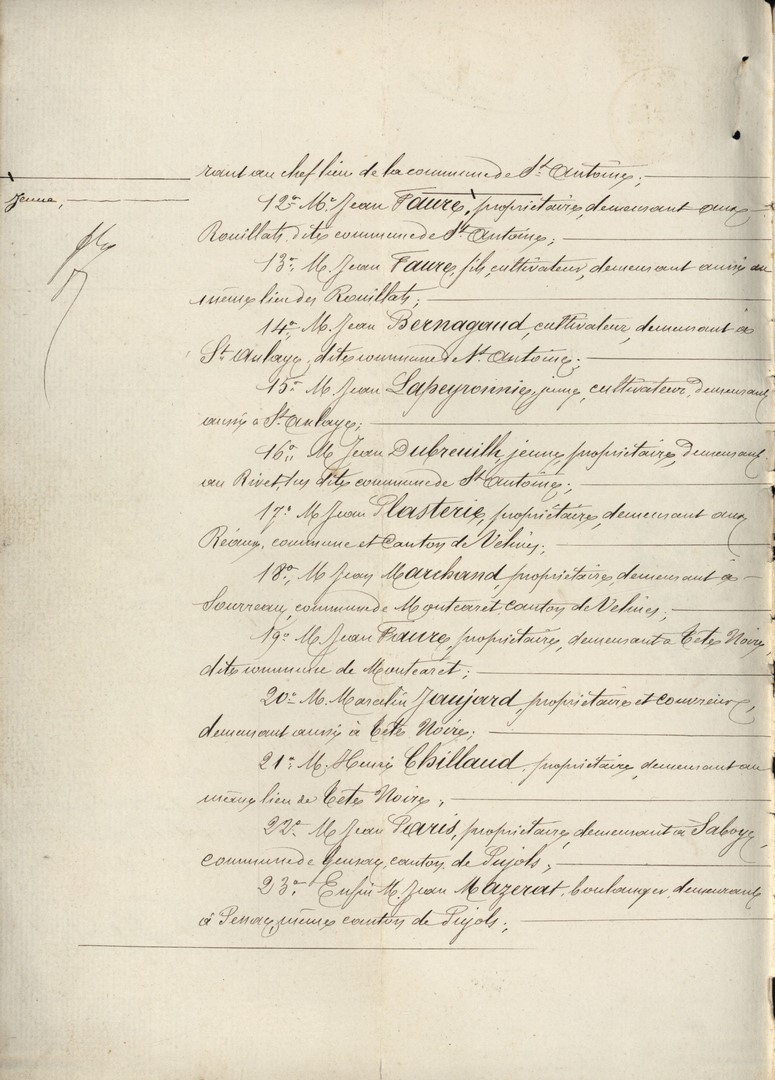 rant au chef lieu de la commune de St. Antoine;
Jeune,
12° Mr. Jean Faure, propriétaire, demeurant aux
Rouillats, dite commune de St. Antoine;
13° M. Jean Faure, fils, cultivateur, demeurant aussi au
même lieu des Rouillats;
14° M. Jean Bernagaud, cultivateur, demeurant à
St. Aulaye, dite commune de St. Antoine;
15° M. Jean Lapeyronnie, jeune, cultivateur, demeurant
aussi à St. Aulaye;
16° M. Jean Dubreuilh, jeune, propriétaire, demeurant
au Rivet, dite commune de St. Antoine;
17° M. Jean Plasterie, propriétaire, demeurant aux
commune et canton de Vélines;
18° M. Jean Marchand, propriétaire, demeurant à
commune de Montcaret canton de Vélines;
19° M. Jean Faure, propriétaire, demeurant à Tête Noire,
dite commune de Montcaret;
20° M. Marcelin Jaujard, propriétaire et couvreur,
demeurant aussi à Tête Noire;
21° M. Henri Chillaud, propriétaire, demeurant au
même lieu de Tête Noire;
22° M. Jean Paris, propriétaire, demeurant à Saboye,
commune de Gensac, canton de Pujols;
23° Enfin M. Jean Mazerat, boulanger, demeurant
à Pessac, même canton de Pujols;